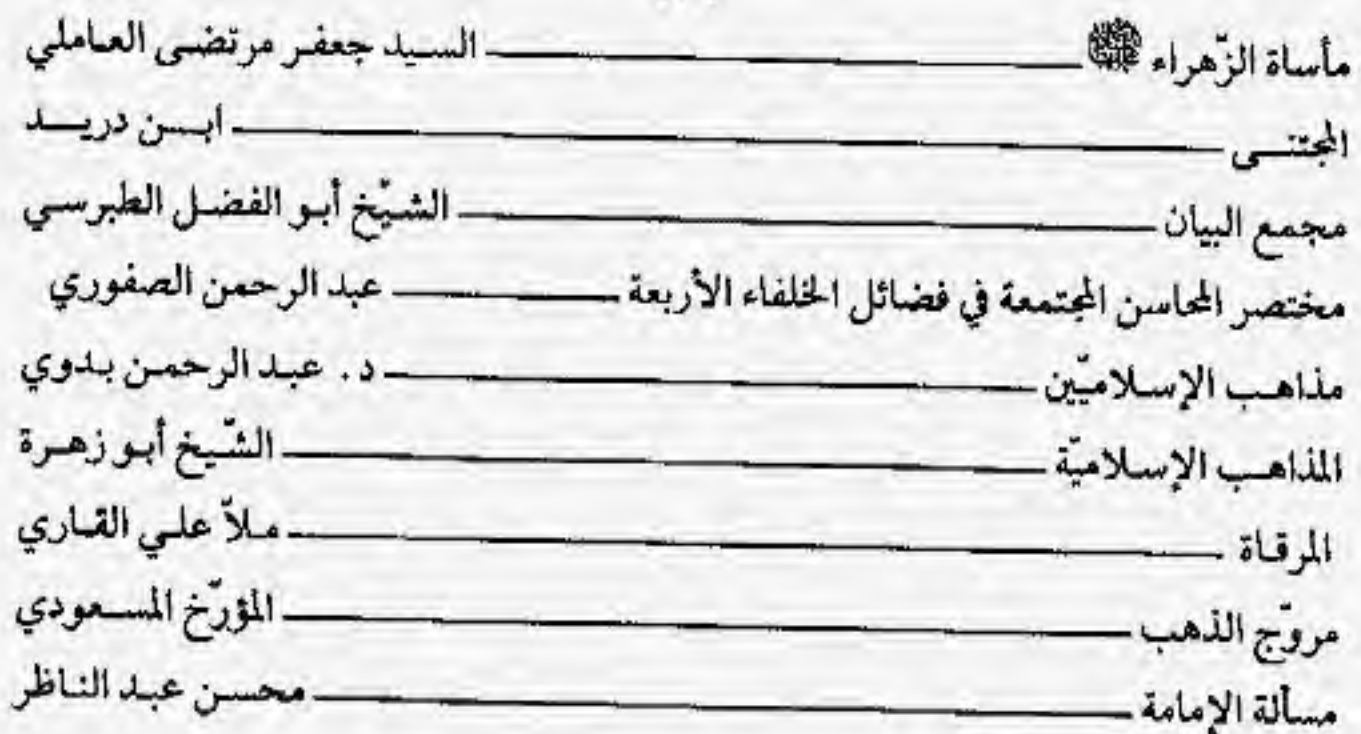 مأساة الزّهراء ـــــــــ السيد جعفر مرتضى العاملي
المجتنى ـــــــــ ابن دريد
مجمع البيان ـــــــــ الشيّخ أبو الفضل الطبرسي
مختصر المحاسن المجتمعة في فضائل الخلفاء الأربعة ـــــــــ عبد الرحمن الصفوري
مذاهب الإسلاميّين ـــــــــ د. عبد الرحمن بدوي
المذاهب الإسلاميّة ـــــــــ الشّيخ أبو زهرة
المرقاة ـــــــــ ملاّ علي القاري
مروّج الذهب ـــــــــ المؤرّخ المسعودي
مسألة الإمامة ـــــــــ محسن عبد الناظر